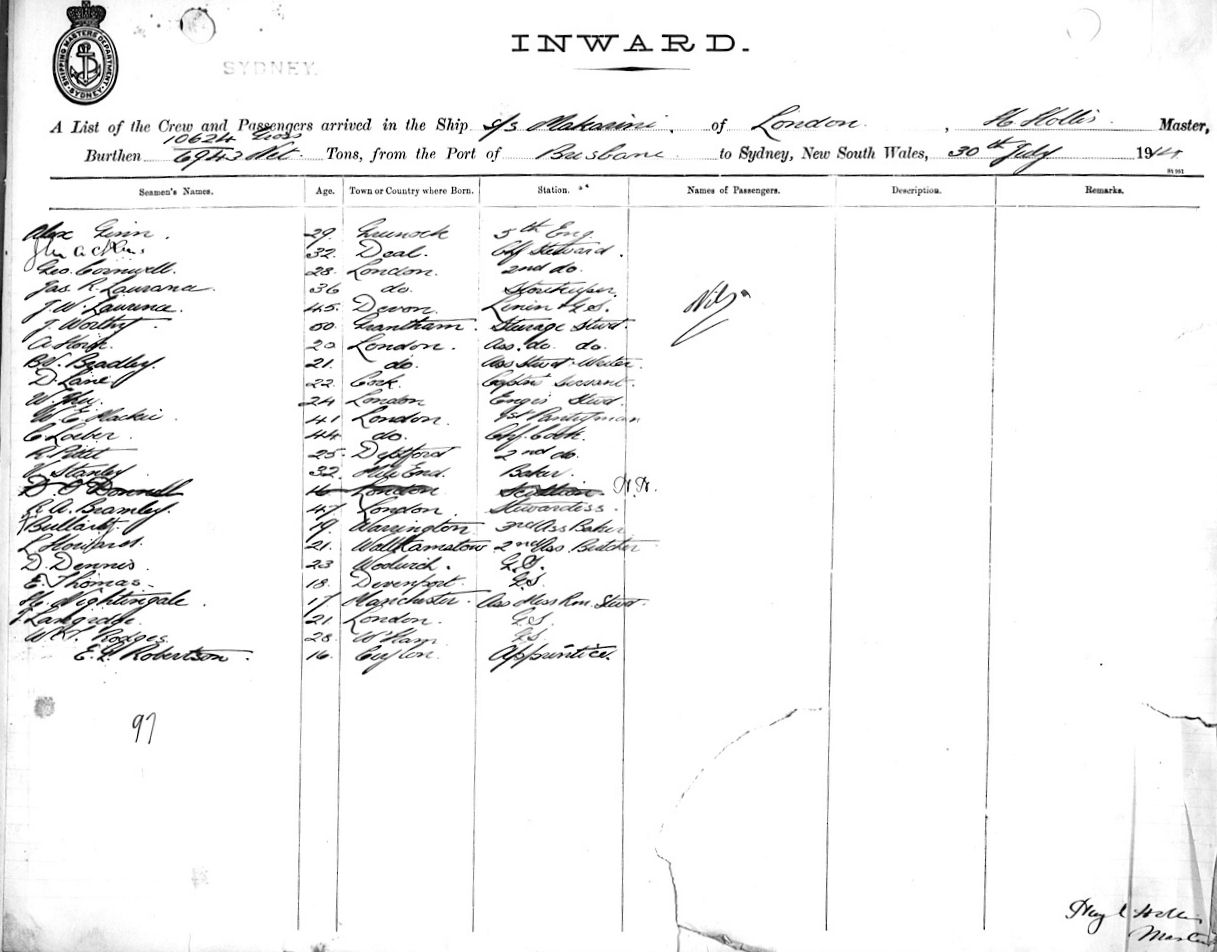 SHIPPING MASTERS DEPARTMENT SYDNEY
SYDNEY.
INWARD.
A List of the Crew and Passengers arrived in the Ship S/S Makarini, of London, H Hollis Master,
10624 Gross
Burthen 6943 Net Tons, from the Port of Brisbane to Sydney, New South Wales, 30th July 1914
Seamen's Names. Age. Town or Country where Born. Station. Names of Passengers. Description. Remarks.
Alex Ginn. 29. Greenock 5th Eng
32. Deal. Chf Steward.
Geo. Cornwell. 28. London. 2nd do.
Jas. R. Laurana. 36 do. Storekeeper.
J. W. Laurence. 45. Devon. Linen & G.S. Nil
J. Worthy 50. Grantham. Steerage Stwd.
A 20 London. Ass. do. do.
Bradley. 21. do. Ass Stwd.
D. Lane 22. Cork. Captns Servant.
W. 24 London Engrs Stwd.
W. E. Mackie. 41 London. 1st Pantryman
C Loeber. 44 do. Chf. Cook.
R Pittet 25 Deptford 2nd do.
W Stanley 32. Mile End. Baker.
D. O'Donnell 16 London Scullion.
A. Bramley. 47 London. Stewardess.
Bullait. 19. Warrington 3rd Ass Baker
L Howard. 21. Walthamstow 2nd Ass Butcher
D. Dennis. 23 Woolwich. G.S.
E. Thomas. 18. Devenport. G.S.
H. Nightingale. 17 Manchester. Ass Mess Rm. Stwd.
Langridge. 21 London. G.S.
W. J. Rodges 28. W Ham G.S
E. F. Robertson. 16. Ceylon. Apprentice.
97
Hugh Hollis
Master